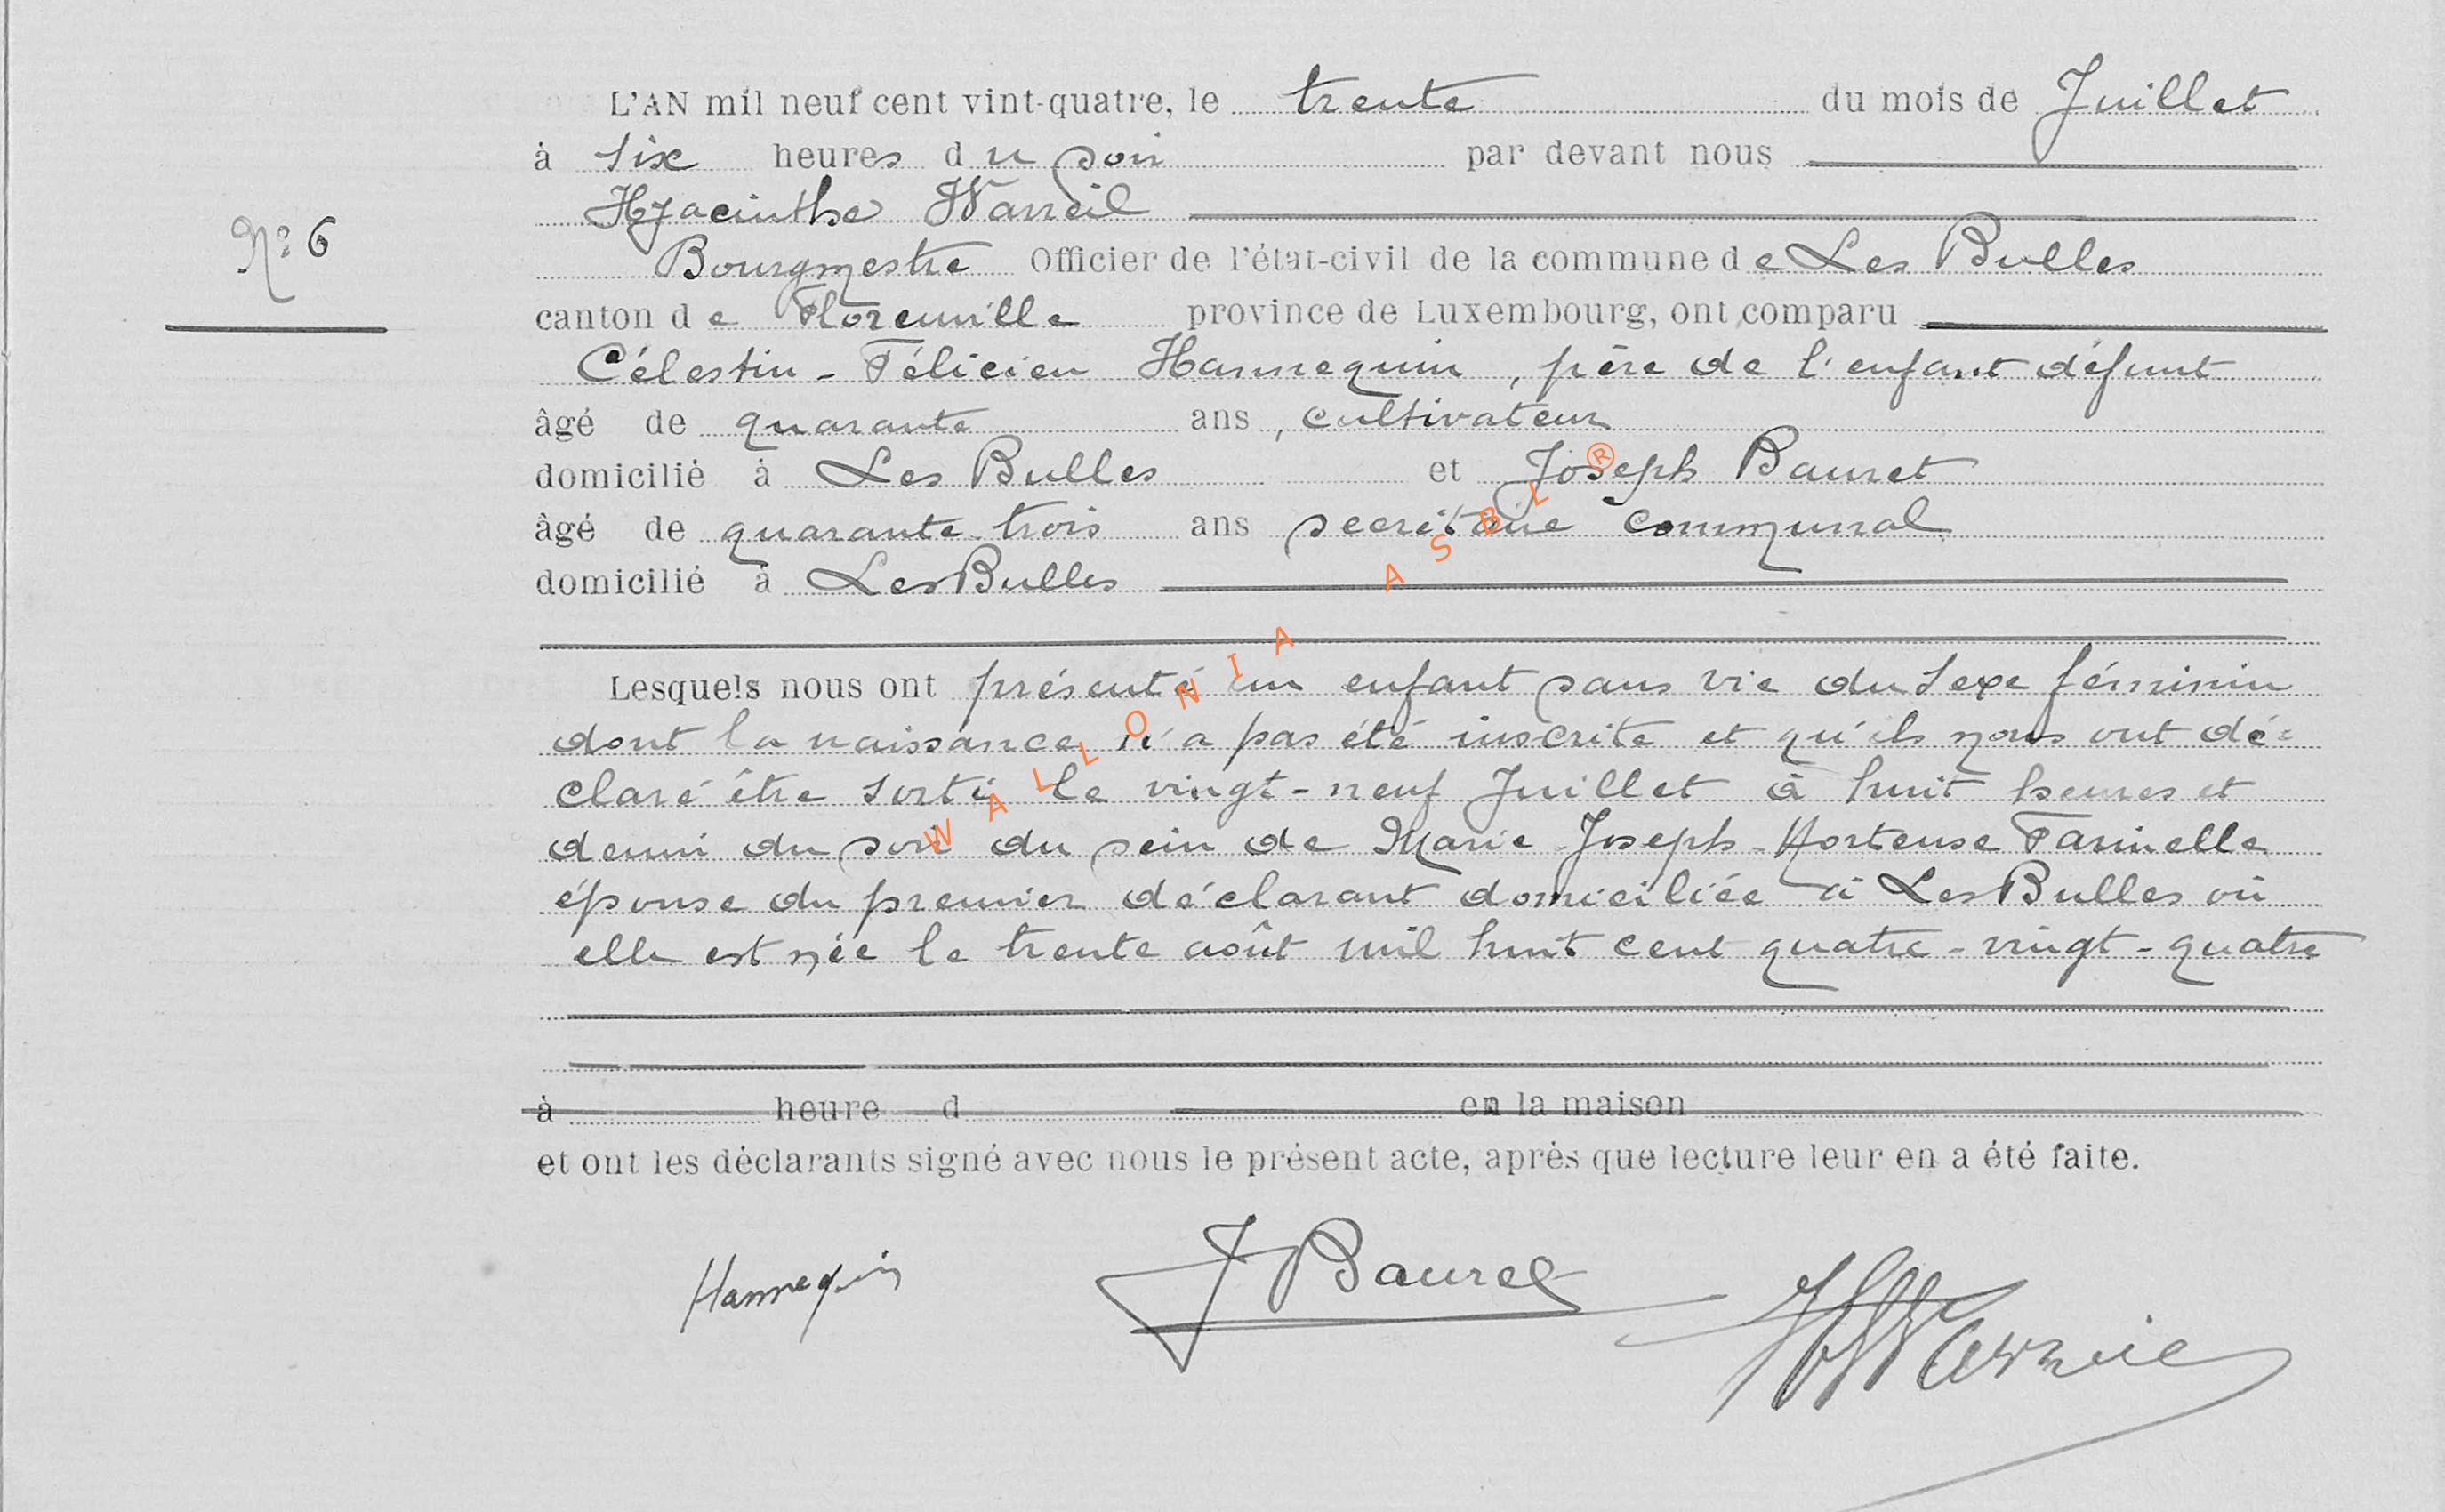 L'AN mil neuf cent vint-quatre, le trente du mois de Juillet
à six heures du soir par devant nous
Hyacinthe Warzeil
N° 6
Bourgmestre Officier de l'état-civil de la commune de Les Bulles
canton de Florenville province de Luxembourg, ont comparu
Célestin - Félicien Hannequin, père de l'enfant défunt
âgé de quarante ans, cultivateur
domicilié à Les Bulles et Joseph Bauret
âgé de quarante-trois ans secrétaire communal
domicilié à Les Bulles
Lesquels nous ont présenté un enfant sans vie du sexe féminin
dont la naissance n'a pas été inscrite et qu'ils nous ont dé=
claré être sorti le vingt-neuf Juillet à huit heures et
demi du soir du sein de Marie-Joseph-Hortense Farinelle
épouse du premier déclarant domiciliée à Les Bulles où
elle est née le trente août mil huit cent quatre-vingt-quatre
à heure d en la maison
et ont les déclarants signé avec nous le présent acte, après que lecture leur en a été faite.
Hannequin J Bauret
WALLONIA ASBL ®